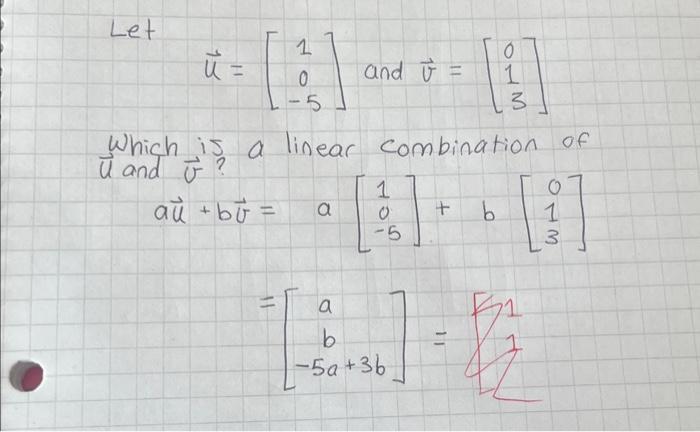 Let
u⃗ = [1 0 -5] and v⃗ = [0 1 3]
Which is a linear combination of
u⃗ and v⃗ ?
au⃗ + bv⃗ = a [1 0 -5] + b [0 1 3]
= [a b -5a+3b] =